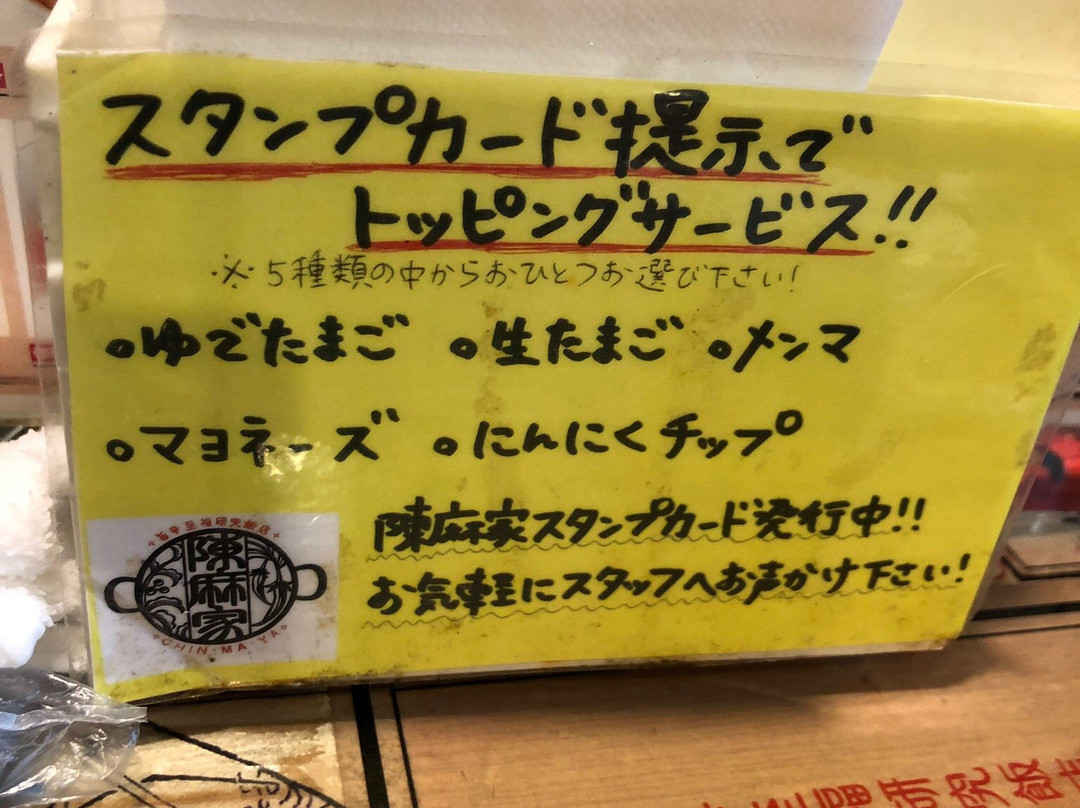 スタンプカード提示で
トッピングサービス!!
※5種類の中からおひとつお選び下さい!
ゆでたまご 生たまご メンマ
マヨネーズ にんにくチップ
陳麻家スタンプカード発行中!!
お気軽にスタッフへお声かけ下さい!
陳麻家
CHIN・MA・YA
研究飯